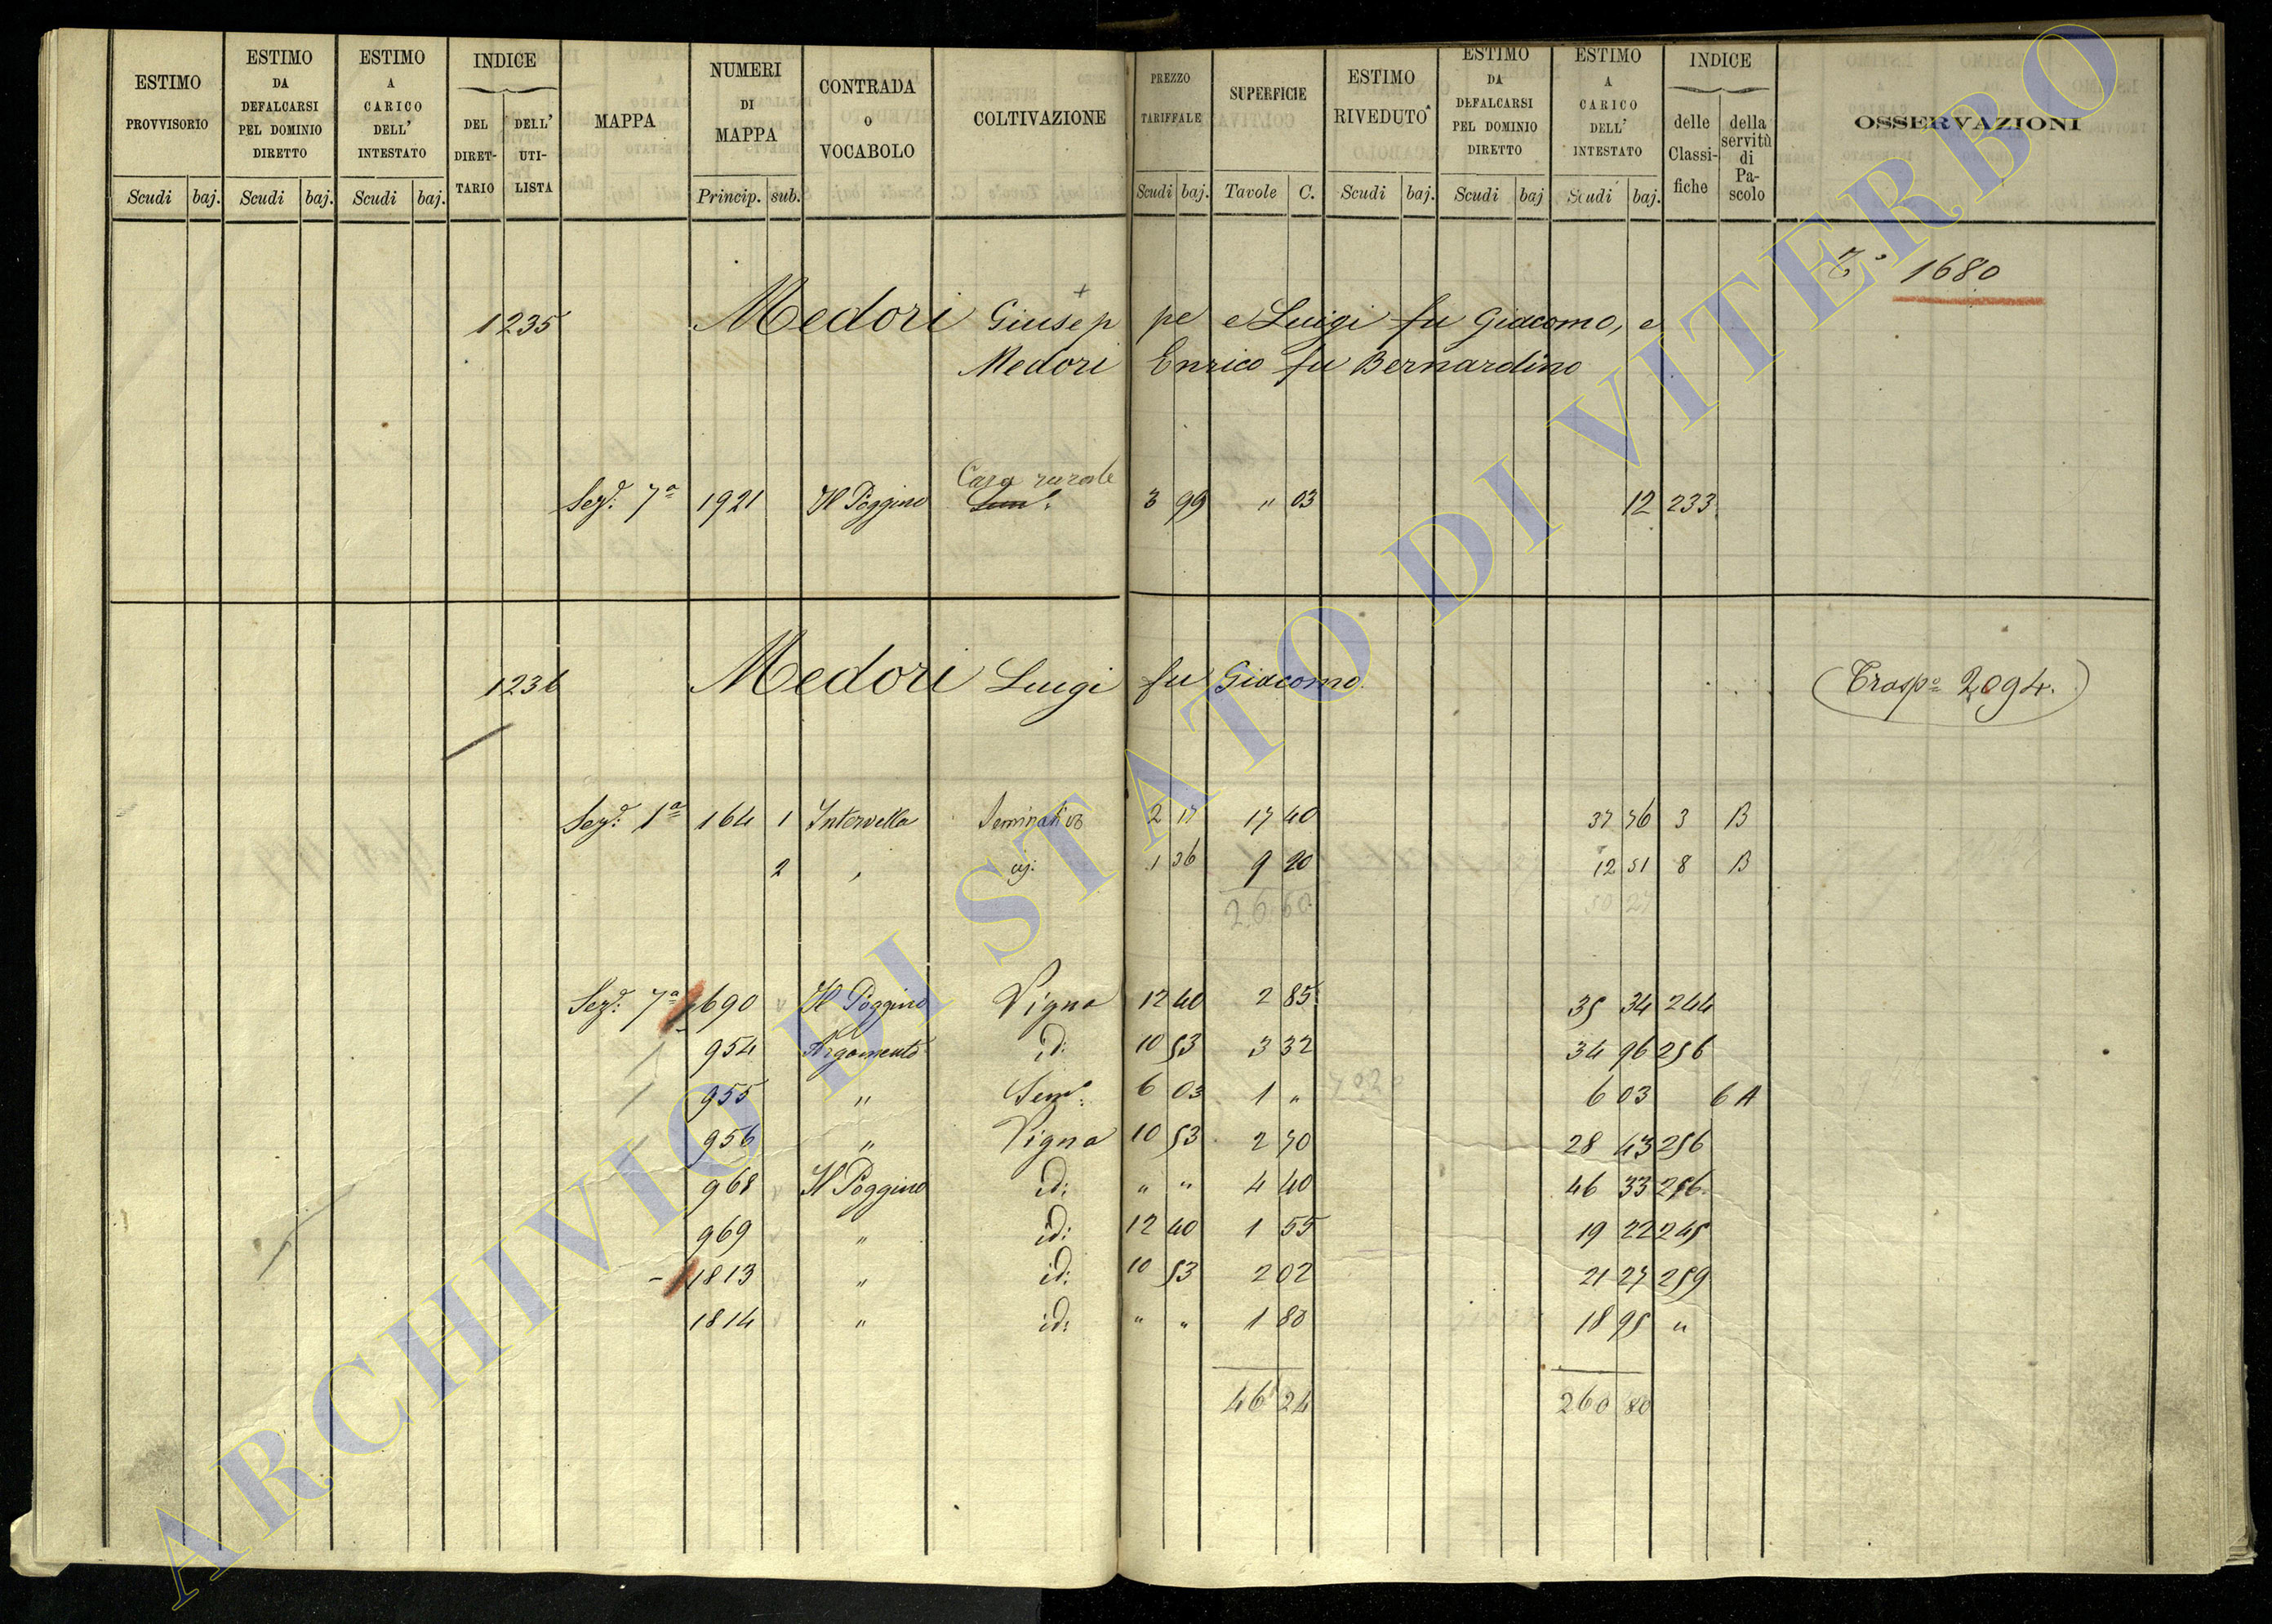 ESTIMO PROVVISORIO Scudi baj.
ESTIMO DA DEFALCARSI PEL DOMINIO DIRETTO Scudi baj.
ESTIMO A CARICO DELL' INTESTATO Scudi baj.
INDICE DEL DIRET-TARIO DELL' UTI-LISTA
MAPPA
NUMERI DI MAPPA Princip. sub.
CONTRADA O VOCABOLO
COLTIVAZIONE
PREZZO TARIFFALE Scudi baj.
SUPERFICIE Tavole C.
ESTIMO RIVEDUTO Scudi baj.
ESTIMO DA DEFALCARSI PEL DOMINIO DIRETTO Scudi baj
ESTIMO A CARICO DELL' INTESTATO Scudi baj.
INDICE delle Classi-fiche della servitù di Pa-scolo
OSSERVAZIONI
1680
1235 Medori Giuseppe e Luigi fu Giacomo, e
Medori Enrico fu Bernardino
Casa rurale
Sez.e 7a 1921 Il Poggino Sem.e 3 99 " 03 12 233
1236 Medori Luigi fu Giacomo. (Trasp.o 2094.)
Sez.e 1a 164 1 Intervella Seminativo 2 17 17 40 37 76 3 B
2 , id: 1 36 9 20 12 51 8 B
26 60 50 27
Sez.e 7a 690 Il Poggino Vigna 12 40 2 85 35 34 244
954 Argomento id: 10 53 3 32 34 96 256
955 " Sem.o 6 03 1 " 6 03 6 A
956 " Vigna 10 53 2 70 28 43 256
968 Il Poggino id: " " 4 40 46 33 256
969 " id: 12 40 1 55 19 22 245
1813 " id: 10 53 2 02 21 27 259
1814 " id: " " 1 80 18 95 "
46 24 260 80
ARCHIVIO DI STATO DI VITERBO